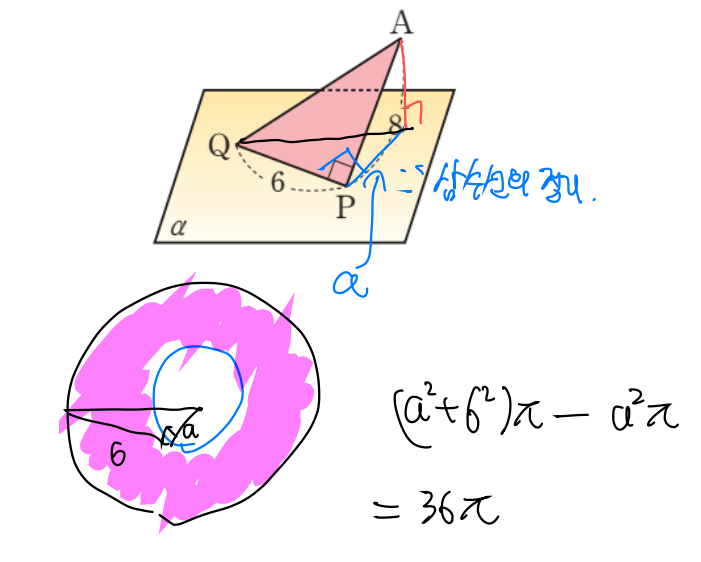 A
8
Q
6
P
α
∵ 삼수선의 정리.
a
a
6
(a²+6²)π - a²π
= 36π